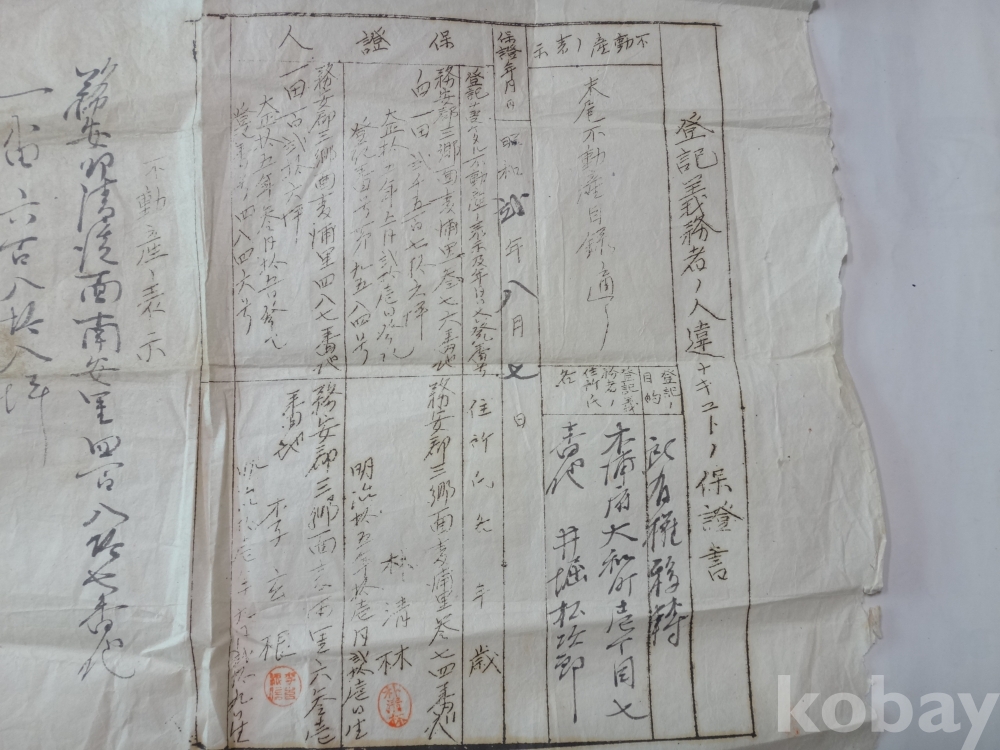 登記義務者ノ人違ナキコトノ保證書
不動産ノ表示
末尾不動産目録ノ通リ
登記ノ目的
所有権移轉
登記義務者ノ住所氏名
木浦府大和町壱丁目七番地 井堀松次郎
保證年月日
昭和弐年八月七日
保證人
住所氏名年歳
務安郡三郷面麦浦里叁七六番地
務安郡三郷面麦浦里叁七四番地
林清林
明治拾五年拾壱月弐拾壱日生
務安郡三郷面麦浦里四八七番地
田百弐拾六坪
大正拾五年叁月拾五日登記
第四八四六号
務安郡三郷面麦浦里六叁壱番地
李玄根
不動産ノ表示
務安郡清渓面南安里四百八拾七番地
一畓六百八拾八坪
kobay